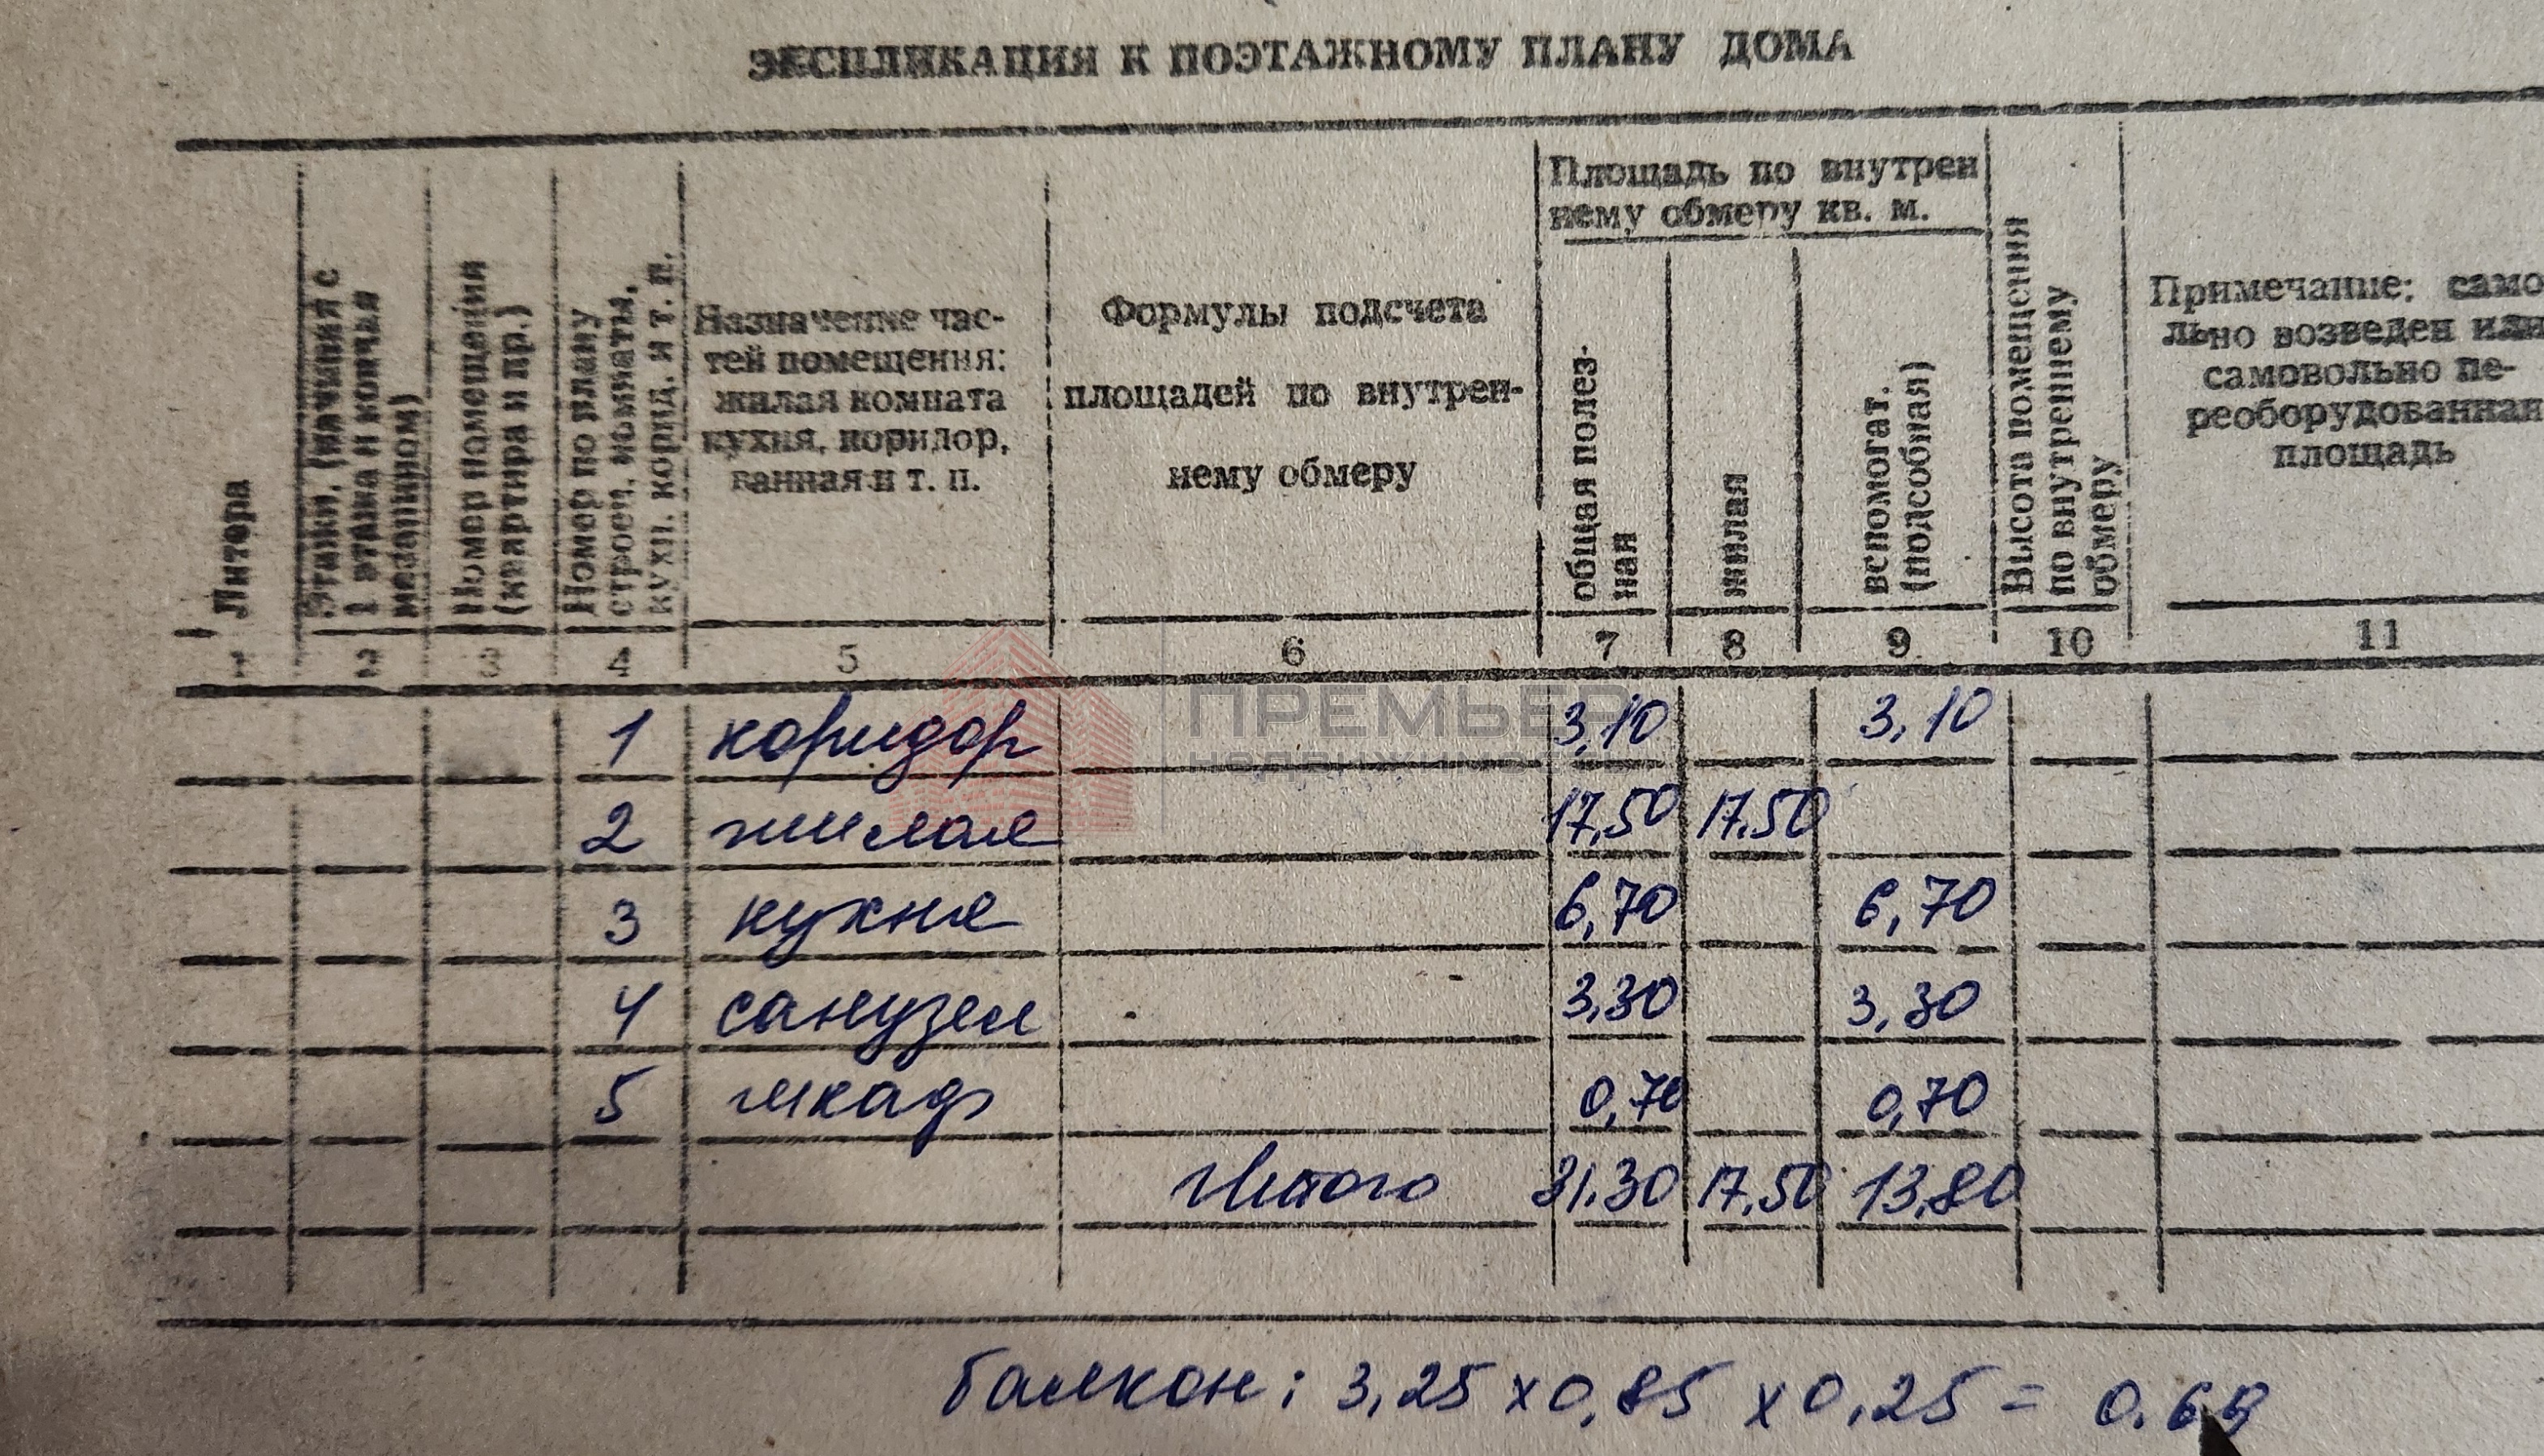 ЭКСПЛИКАЦИЯ К ПОЭТАЖНОМУ ПЛАНУ ДОМА
Литера
Этажи, (начиная с
1 этажа и кончая
мезанином)
Номер помещения
(квартира и пр.)
Номер по плану
строен, комнаты,
кухн. корид. и т. п.
Назначение час-
тей помещения:
жилая комната
кухня, коридор,
ванная и т. п.
Формулы подсчета
площадей по внутрен-
нему обмеру
Площадь по внутрен
нему обмеру кв. м.
общая полез-
ная
жилая
вспомогат.
(подсобная)
Высота помещения
по внутреннему
обмеру
Примечание: само
льно возведен или
самовольно пе-
реоборудованная
площадь
1 2 3 4 5 6 7 8 9 10 11
1 коридор 3,10 3,10
2 жилая 17,50 17.50
3 кухня 6,70 6,70
4 санузел 3,30 3,30
5 шкаф 0,70 0,70
Итого 31.30 17.50 13,80
балкон: 3,25 х 0,85 х 0,25 = 0.69
ПРЕМЬЕР
НЕДВИЖИМОСТЬ